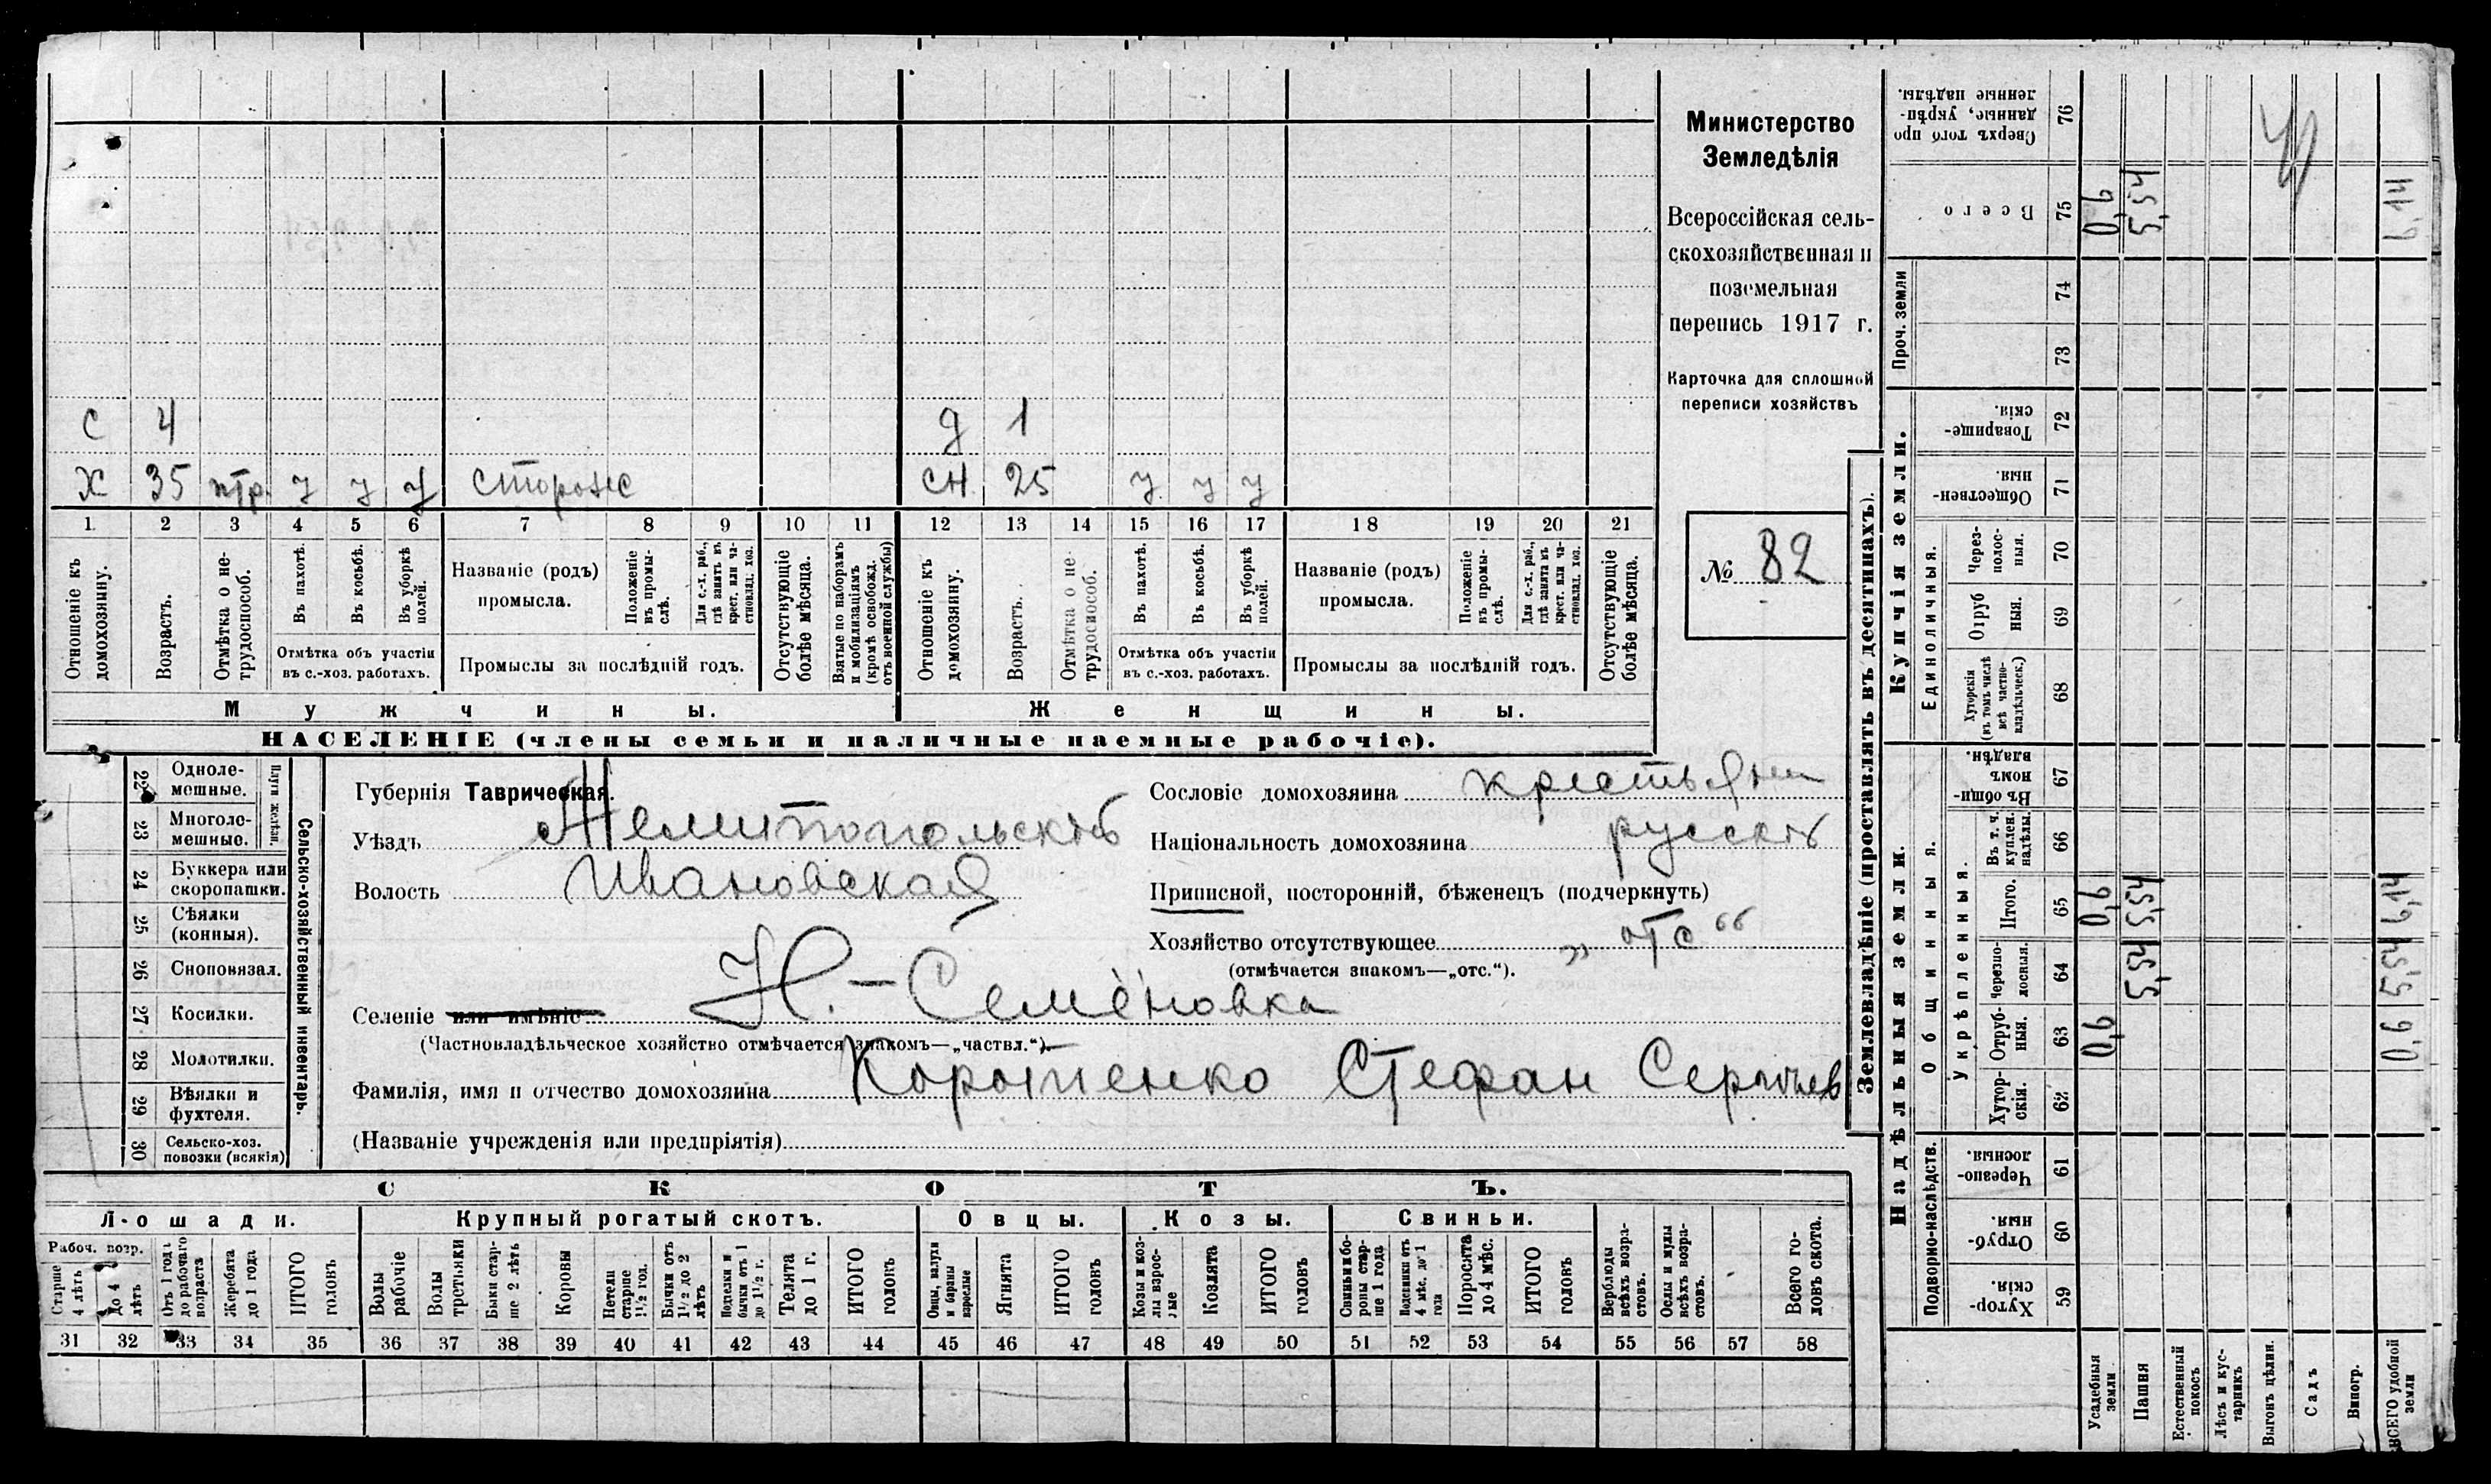 С 4 д 1
Х 35 птр. у у у сторож сн. 25 у у у
1. 2 3 4 5 6 7 8 9 10 11 12 13 14 15 16 17 18 19 20 21
Отношеніе къ домохозяину.
Возрастъ.
Отмѣтка о не-трудоспособ.
Въ пахотѣ.
Въ косьбѣ.
Въ уборкѣ полей.
Отмѣтка объ участіи
въ с.-хоз. работахъ.
Названіе (родъ)
промысла.
Положеніе въ промы-слѣ.
Для с.-х. раб., гдѣ занятъ въ крест. или ча-стновлад. хоз.
Промыслы за послѣдній годъ.
Отсутствующіе болѣе мѣсяца.
Взятые по наборамъ и мобилизаціямъ (кромѣ освобожд. отъ военной службы)
Отношеніе къ домохозяину.
Возрастъ.
Отмѣтка о не-трудоспособ.
Въ пахотѣ.
Въ косьбѣ.
Въ уборкѣ полей.
Отмѣтка объ участіи
въ с.-хоз. работахъ.
Названіе (родъ)
промысла.
Положеніе въ промы-слѣ.
Для с.-х. раб., гдѣ занята въ крест. или ча-стновлад. хоз.
Промыслы за послѣдній годъ.
Отсутствующіе болѣе мѣсяца.
Мужчины. Женщины.
НАСЕЛЕНІЕ (члены семьи и наличные наемные рабочіе).
Министерство
Земледѣлія
Всероссійская сель-
скохозяйственная и
поземельная
перепись 1917 г.
Карточка для сплошной
переписи хозяйствъ
№ 82
22 Одноле-мешные.
23 Многоле-мешные.
Плуги желѣзн.
24 Буккера или скоропашки.
25 Сѣялки (конныя).
26 Сноповязал.
27 Косилки.
28 Молотилки.
29 Вѣялки и фухтеля.
30 Сельско-хоз. повозки (всякія)
Сельско-хозяйственный инвентарь.
Губернія Таврическая.
Уѣздъ Мелитопольскій
Волость Ивановская
Селеніе или имѣніе Н.-Семёновка
(Частновладѣльческое хозяйство отмѣчается знакомъ—„частвл.“).
Фамилія, имя и отчество домохозяина Коротенко Стефан Сергѣев
(Названіе учрежденія или предпріятія)
Сословіе домохозяина крестьянин
Національность домохозяина русскій
Приписной, посторонній, бѣженец (подчеркнуть)
Хозяйство отсутствующее „отс“
(отмѣчается знакомъ—„отс.“).
СКОТЪ.
Лошади. Крупный рогатый скотъ. Овцы. Козы. Свиньи.
Рабоч. возр.
Старше 4 лѣтъ
До 4 лѣтъ
Отъ 1 года до рабочаго возраста
Жеребята до 1 года
ИТОГО головъ
Волы рабочіе
Волы третьяки
Быки стар-ше 2 лѣтъ
Коровы
Нетели старше 1½ год.
Бычки отъ 1½ до 2 лѣтъ
Подтелки и бычки отъ 1 до 1½ г.
Телята до 1 г.
ИТОГО головъ
Овцы, валухи и бараны взрослые
Ягнята
ИТОГО головъ
Козы и коз-лы взрос-лые
Козлята
ИТОГО головъ
Свиньи и бо-ровы стар-ше 1 года
Подсвинки отъ 4 мѣс. до 1 года
Поросята до 4 мѣс.
ИТОГО головъ
Верблюды всѣхъ возра-стовъ.
Ослы и мулы всѣхъ возра-стовъ.
Всего го-ловъ скота.
31 32 33 34 35 36 37 38 39 40 41 42 43 44 45 46 47 48 49 50 51 52 53 54 55 56 57 58
Землевладѣніе (проставлять въ десятинахъ).
Надѣльныя земли. Купчія земли. Проч. земли
Подворно-наслѣдств.
Общинныя.
Укрѣпленныя.
Единоличныя.
Хутор-скія. 59
Отруб-ныя. 60
Черезпо-лосныя. 61
Хутор-скія. 62
Отруб-ныя. 63 0,6 0,6
Черезпо-лосныя. 64 5,54 5,54
Итого. 65 0,6 5,54 6,14
Въ т. ч. куплен. надѣлы. 66
Въ общин-номъ владѣн. 67
Хуторскія (въ томъ числѣ всѣ частно-владѣльческ.) 68
Отруб ныя. 69
Через-полос-ныя. 70
Обществен-ныя. 71
Товарище-скія. 72
73
74
Всего 75 0,6 5,54 6,14
Сверхъ того про данные, укрѣп-ленные надѣлы. 76
Усадебныя земли
Пашня
Естественный покосъ
Лѣсъ и кус-тарникъ
Выгонъ цѣлин.
Садъ
Виногр.
ВСЕГО удобной земли